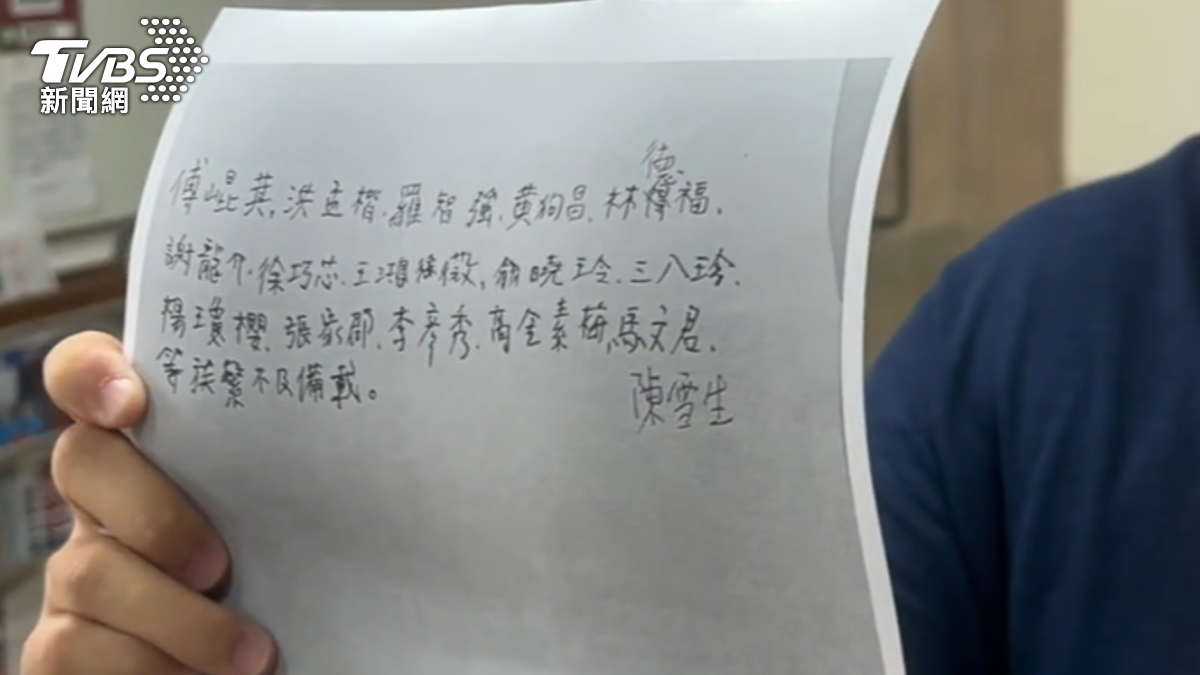 TVBS
新聞網
德
傅崐萁,洪孟楷、羅智強、黃狗昌、林福、
謝龍介、徐巧芯、王鴻薇、翁曉玲、三八玲、
楊瓊櫻、張家郡、李彥秀、高金素梅、馬文君、
等族繁不及備載。
陳雪生